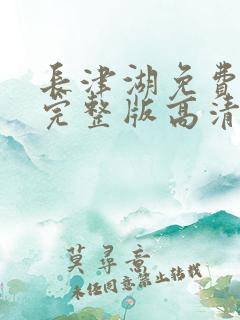 長津湖免費
完整版高清
莫尋意
未经同意禁止转载